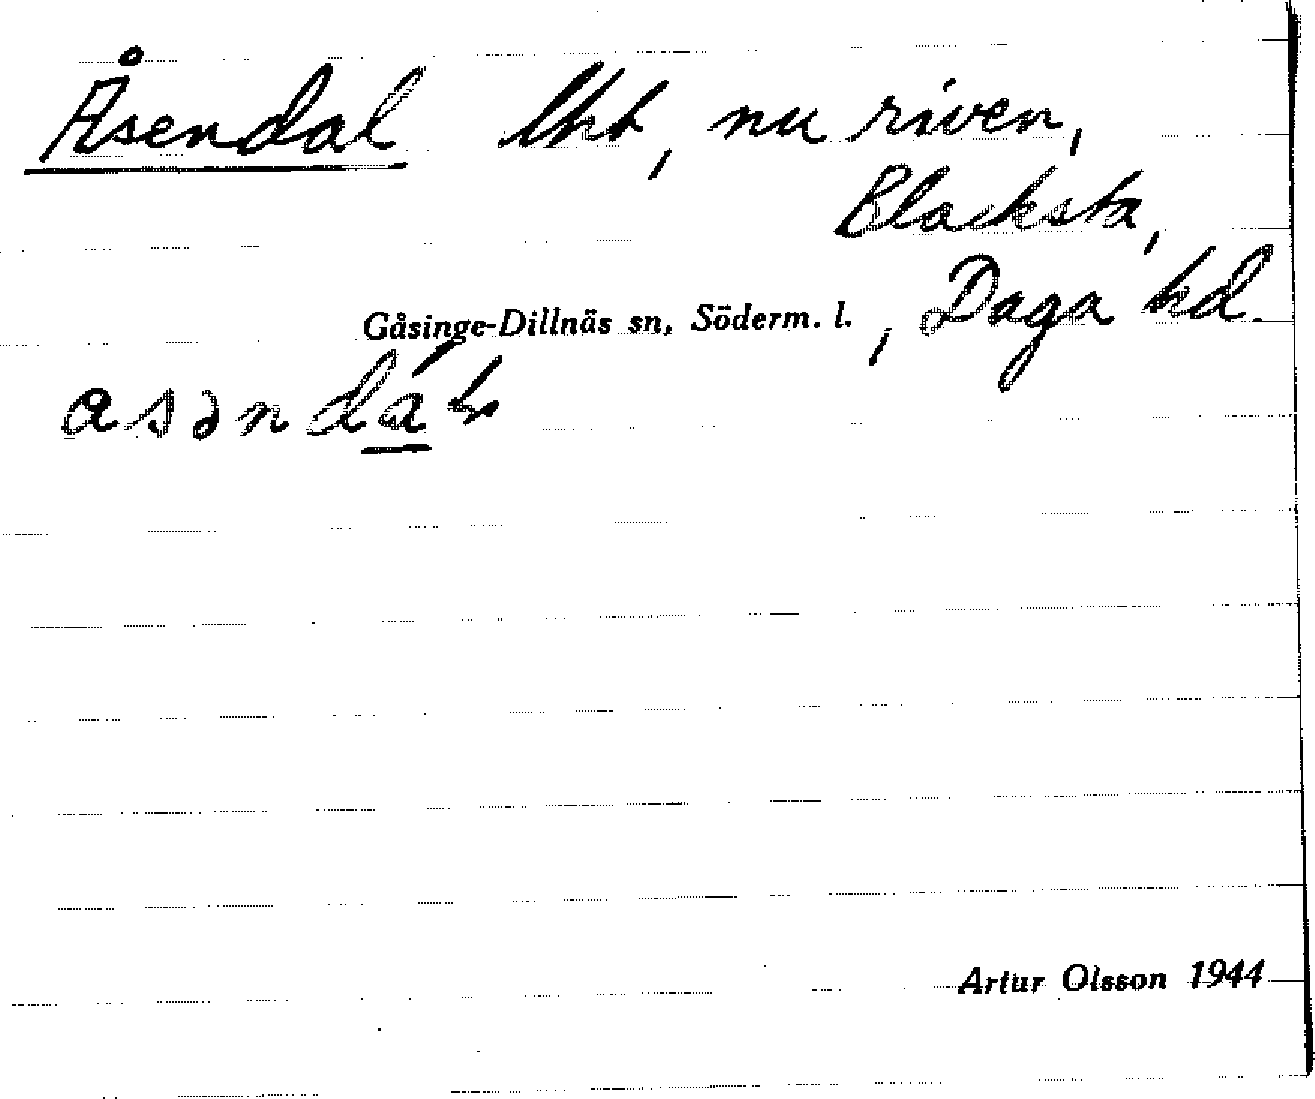 Åsendal lht, nu riven,
Blacksta,
Gåsinge-Dillnäs sn, Söderm. l. , Daga hd.
asəndáɫ
Artur Olsson 1944